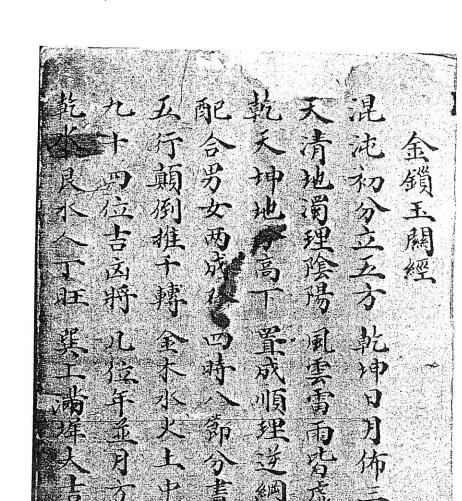 金鎖玉關經
混沌初分立五方 乾坤日月佈三
天清地濁理陰陽 風雲雷雨皆虎
乾天坤地分高下 置成順理逆綱
配合男女兩成 四時八節分書
五行顛倒推千轉 金木水火土中
九十四位吉凶將 几位年並月方
乾水艮水人丁旺 巽工滿堆大吉